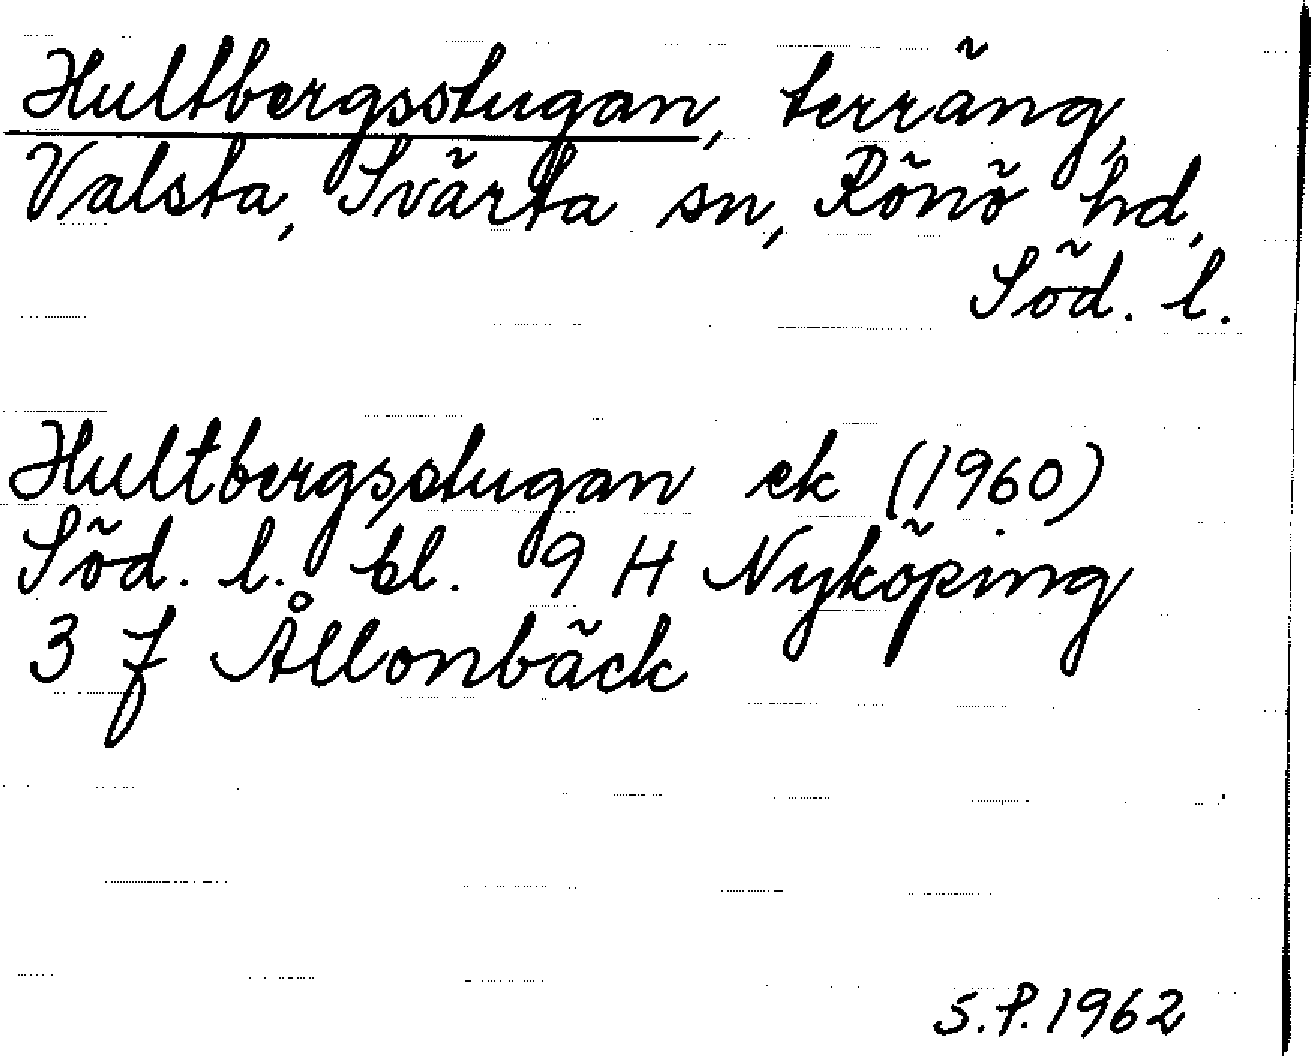 Hultbergsstugan, terräng,
Valsta, Svärta sn, Rönö hd,
Söd. l.
Hultbergsstugan ek (1960)
Söd. l. bl. 9 H Nyköping
3 f Ållonbäck
S.P. 1962